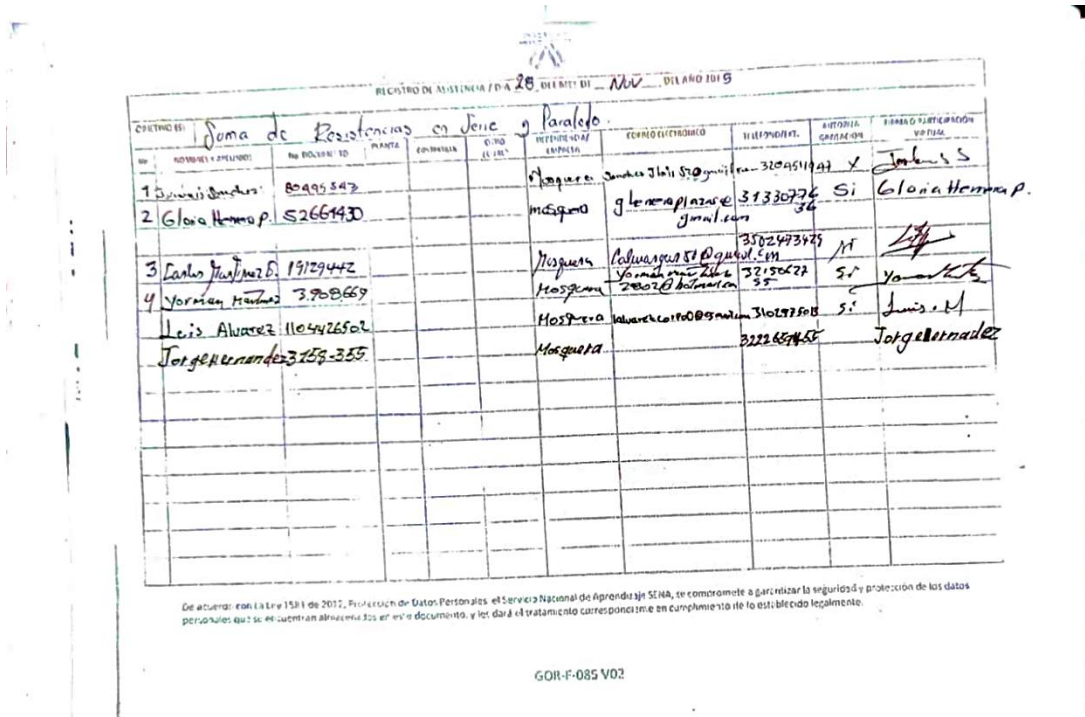 REGISTRO DE ASISTENCIA / DIA 28 DEL MES DE Nov DEL AÑO 2019
OBJETIVO(S): Suma de Resistencias en Serie y Paralelo.
No NOMBRES Y APELLIDOS No DOCUMENTO PLANTA CONTRATISTA OTRO DEPENDENCIA/ EMPRESA CORREO ELECTRÓNICO TELÉFONO/EXT. AUTORIZA GRABACIÓN FIRMA O PARTICIPACIÓN VIRTUAL
1 Sanchez 80495547 Mosquera 3204511947 X
2 Gloria Herrera p. 52661430 mosquera 31330776 36 Si Gloria Herrera p.
gmail.com
3 Carlos Martinez 19129442 Mosquera 3502473429
4 Yorman Martinez 3.908669 Mosquera 2802@hotmail.com 32150627 55 Si
Leis Alvarez 1104426502 Mosquera 3102975013 Si Luis. M
Jorge Hernandez 3158-355 Mosquera 3222659455 Jorge Hernadez
De acuerdo con La Ley 1581 de 2012, Protección de Datos Personales, el Servicio Nacional de Aprendizaje SENA, se compromete a garantizar la seguridad y protección de los datos
personales que se encuentran almacenados en este documento, y les dará el tratamiento correspondiente en cumplimiento de lo establecido legalmente.
GOR-F-085 V02